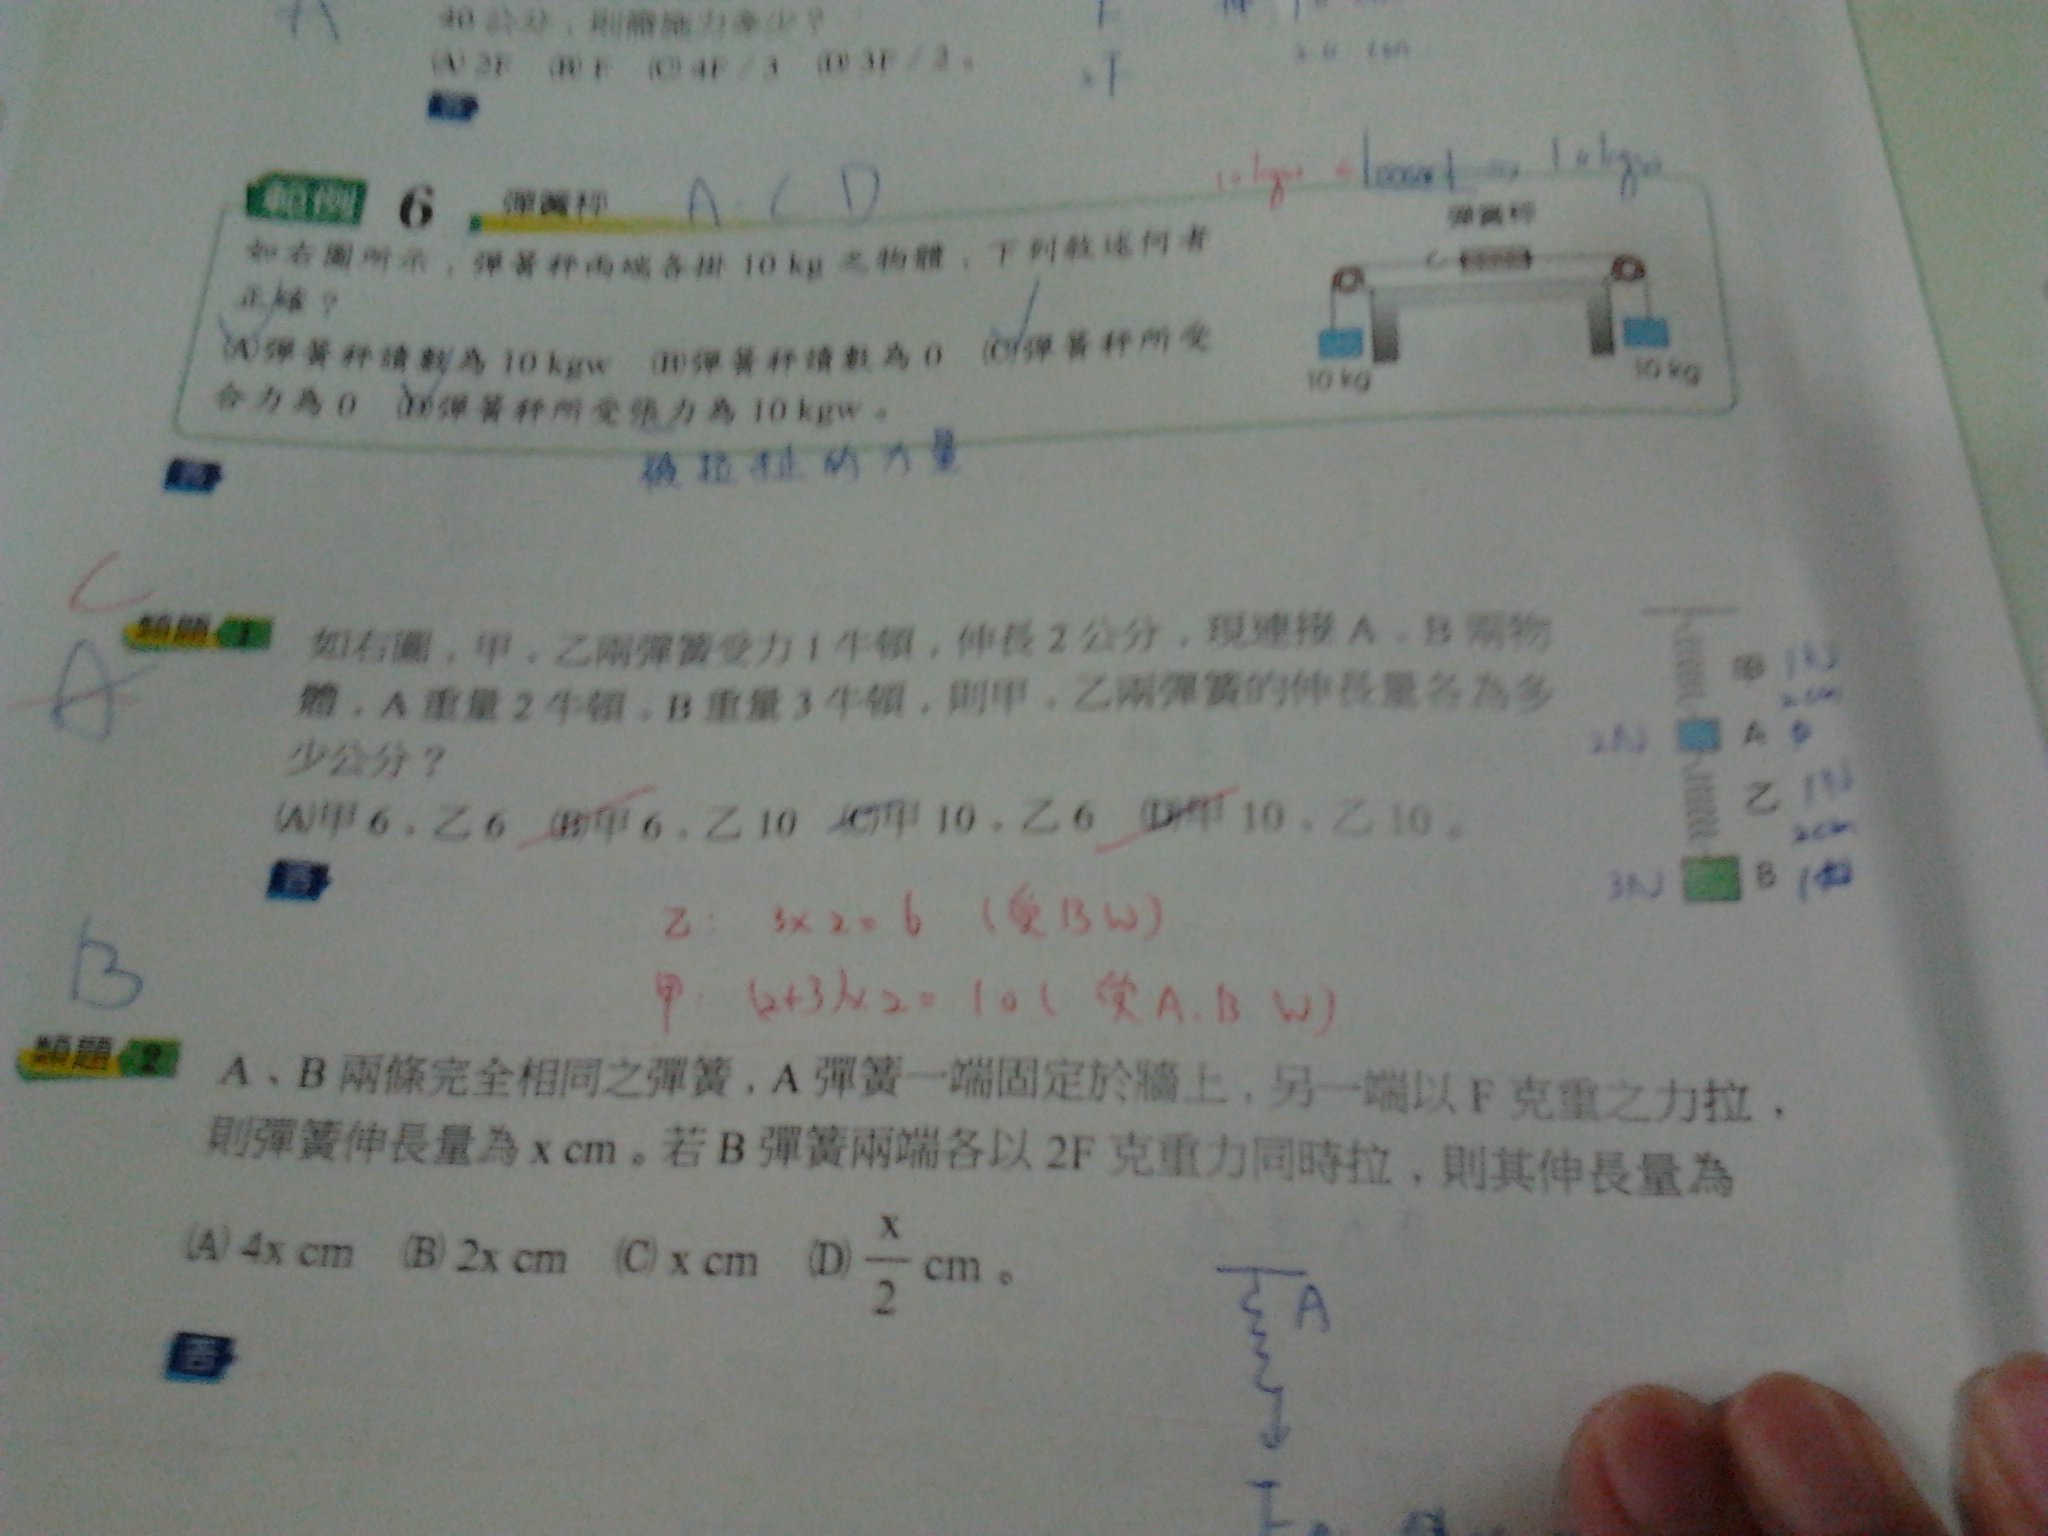 A
40公分，則需施力多少？
(A) 2F (B) F (C) 4F／3 (D) 3F／2。
答
10 kgw
10 kgw
範例 6 彈簧秤 A C D
彈簧秤
如右圖所示，彈簧秤兩端各掛 10 kg 之物體，下列敘述何者
正確？
(A)彈簧秤讀數為 10 kgw (B)彈簧秤讀數為 0 (C)彈簧秤所受
合力為 0 (D)彈簧秤所受張力為 10 kgw。
10 kg
10 kg
答
的力量
C
A
類題 1 如右圖，甲、乙兩彈簧受力 1 牛頓，伸長 2 公分，現連接 A、B 兩物
體，A 重量 2 牛頓，B 重量 3 牛頓，則甲、乙兩彈簧的伸長量各為多
少公分？
(A)甲 6，乙 6 (B)甲 6，乙 10 (C)甲 10，乙 6 (D)甲 10，乙 10。
甲 1N
2cm
2N A
乙 1N
2cm
3N B
答
乙： 3×2=6 (受 B W)
甲： (2+3)×2=10 (受 A.B W)
B
類題 2 A、B 兩條完全相同之彈簧，A 彈簧一端固定於牆上，另一端以 F 克重之力拉，
則彈簧伸長量為 x cm。若 B 彈簧兩端各以 2F 克重力同時拉，則其伸長量為
(A) 4x cm (B) 2x cm (C) x cm (D) x/2 cm。
答
A